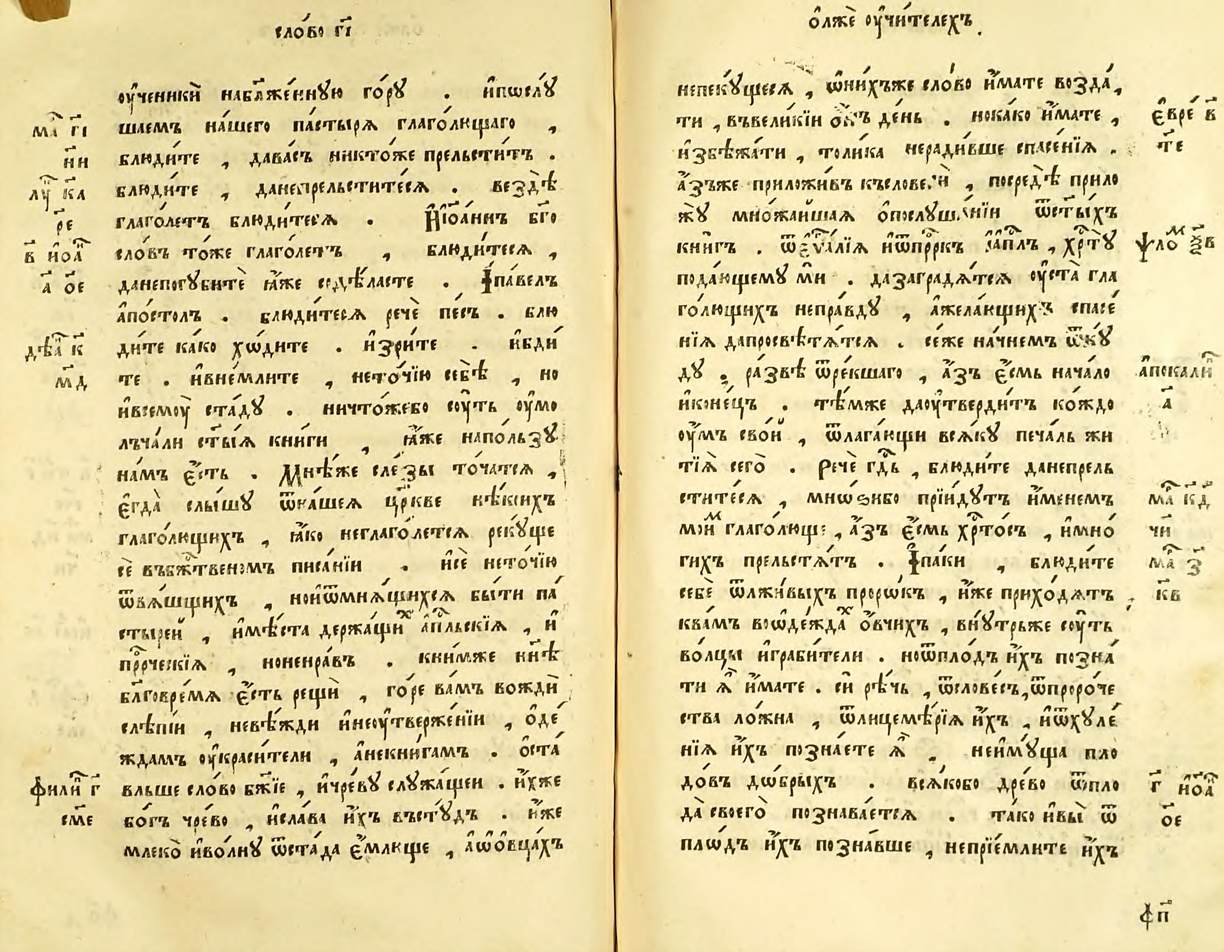 сло́во г҃і
ѹ҆ченикѝ набл҃же́ннꙋю го́рꙋ . и҆послꙋ́
шаемъ на́шего па́стырѧ глаго́лющаго ,
блюди́те , дава́съ никто́же прельсти́тъ .
блюди́те , данепрельсти́тесѧ . вездѣ̀
глаго́летъ блюди́тесѧ . И҆і҆ѡа́ннъ бг҃о
сло́въ то́же глаго́летъ , блюди́тесѧ ,
данепогꙋби́те ꙗ҆́же содѣ́ласте . І҆па́велъ
а҆по́столъ . блюди́тесѧ речѐ пе́съ . блю
ди́те ка́ко хо́дите . и҆зри́те . и҆бди́
те . и҆внемли́те , нето́чїю себѣ̀ , но
и҆всемꙋ̀ ста́дꙋ . ничто́жебо сꙋ́ть ѹ҆мо
лъча́ли ст҃ы́ѧ кни́ги , ꙗ҆́же напо́льзꙋ
на́мъ є҆́сть . Мнѣ́же сле́зы точа́тсѧ ,
є҆гда̀ слы́шꙋ ѿна́шеѧ цр҃кве нѣ́кихъ
глаго́лющихъ , ꙗ҆́ко неглаго́летсѧ реку́ще
сѐ въбж҃твеномъ писа́нїи . и҆сѐ нето́чїю
ѿвѧ́щшихъ , нои҆ѿмнѧ́щихсѧ бы́ти па́
стырей , и҆мѣ́ста держа́щихъ а҆пⷭ҇льскїѧ , и҆
прⷪ҇ро́ческїѧ , ноненра́въ . кни́мже нн҃ѣ
бл҃говре́мѧ є҆́сть рещѝ , го́ре ва́мъ вождѝ
слѣпі́и , невѣ́жди и҆неѹ҆твержде́нїи , ѻ҆де́
ждамъ ѹ҆краси́тели , а҆некни́гамъ . ѻ҆ста́
вльше сло́во бж҃їе , и҆чре́вꙋ слꙋжа́щеи . и҆́хже
бо́гъ чре́во , и҆сла́ва и҆́хъ въстꙋ́дъ . и҆́же
млеко̀ и҆во́лнꙋ ѿста́да є҆́млюще , а҆ѡ҆ѻвца́хъ
маⷴ г҃і
н҃и
лꙋⷦ к҃а
р҃е
в҃ и҆оа҃
а҃ о҃е
дѣѧ҃ к҃
м҃д
филиⷫ г҃
с҃ме
ѻ҆лжѐ ѹ҆чи́телехъ
непекꙋ́щесѧ , ѡ҆ни́хъже сло́во и҆́мате возда́
ти , въвели́кїи ѻ҆́нъ де́нь . нока́ко и҆́мате ,
и҆збѣжа́ти , толи́ка неради́вше спасе́нїѧ .
а҆́зъже приложи́въ къслове́си , посредѣ̀ прило
жꙋ̀ мно́жаишаѧ ѻ҆послꙋша́нїи ѿст҃ы́хъ
кни́гъ . ѿе҆ѵⷢ҇а́лїѧ и҆ѿпрⷪ҇ркъ и҆а҆пⷭ҇лъ , хрⷭ҇тꙋ̀
подаю́щемꙋ мѝ . дазаградѧ́тсѧ ѹ҆ста̀ гла
го́лющихъ непра́вдꙋ , а҆жела́ющихъ спасе́
нїѧ дапросвѣтѧ́тсѧ . се́же начне́мъ ѿкꙋ́
дꙋ . ра́звѣ ѿре́кшаго , а҆́зъ є҆́смь нача́ло
и҆коне́цъ . тѣ́мже даѹ҆тверди́тъ ко́ждо
ѹ҆́мъ сво́й , ѿлага́ющи всѧ́кꙋ печа́ль жи
тїѧ̀ сего̀ . Речѐ гдⷭ҇ь , блюди́те данепрель
стите́сѧ , мно́зибо прїи́дꙋтъ и҆́менемъ
мои́мъ глаго́люще , а҆́зъ є҆́смь хрⷭ҇то́съ , и҆мно́
гихъ прельстѧ́тъ . І҆па́ки , блюди́те
себѐ ѿлжи́выхъ проро́къ , и҆́же прихо́дѧтъ
ква́мъ воѡ҆де́ждахъ ѻ҆́вчихъ , внꙋ́трьже сꙋ́ть
во́лцы и҆граби́тели . ноѿпло́дъ и҆́хъ позна́
ти ѧ҆̀ и҆́мате . си́ рѣ́чь , ѿслове́съ, ѿпроро́че
ства ло́жна , ѿлицемѣ́рїѧ и҆́хъ , и҆ѿхꙋле́
нїѧ и҆́хъ позна́ете ѧ҆̀ . неи҆мꙋ́ща пло
до́въ до́брыхъ . всѧ́кобо дре́во ѿпло
да̀ своего̀ познава́етсѧ . та́ко и҆вы̀ ѿ
пло́дъ и҆́хъ позна́вше , непрїе́млите и҆́хъ
є҆вре́ в҃
т҃е
ѱло́ м҃ ѯ҃в
а҆покалиⷫ
а҃
маⷴ к҃д
ч҃и
маⷴ з҃
к҃в
г҃ и҆оа҃
о҃е
ф҃п